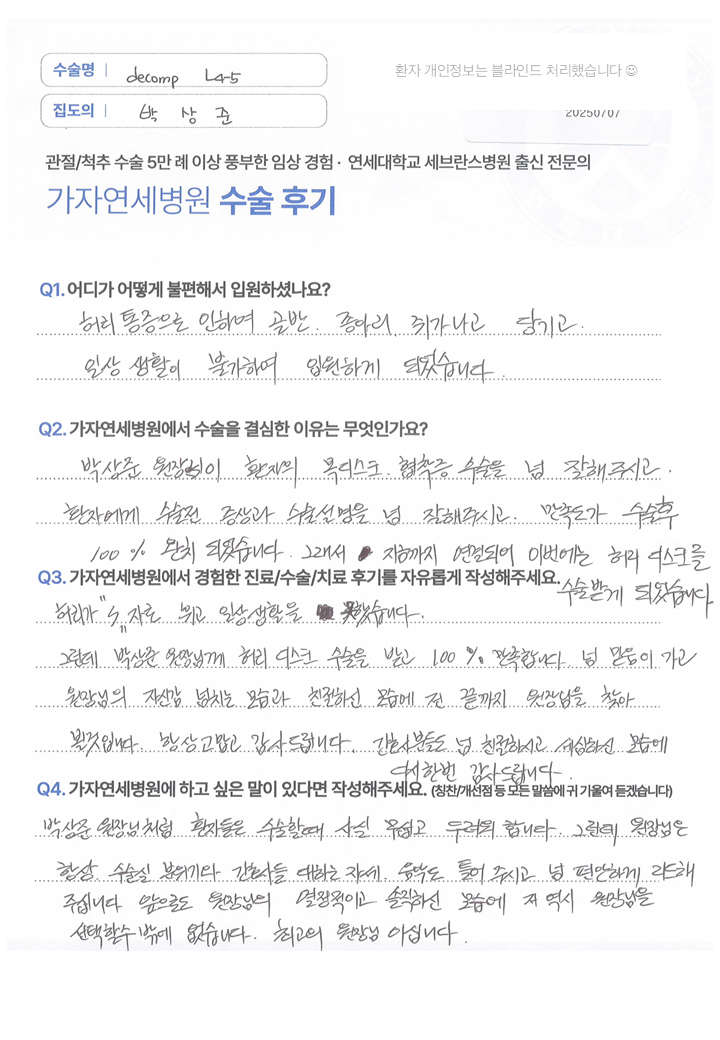 수술명 | decomp L4-5
환자 개인정보는 블라인드 처리했습니다 ☺
집도의 | 박 상 준
20250707
관절/척추 수술 5만 례 이상 풍부한 임상 경험 · 연세대학교 세브란스병원 출신 전문의
가자연세병원 수술 후기
Q1. 어디가 어떻게 불편해서 입원하셨나요?
허리 통증으로 인하여 골반. 종아리. 쥐가나고 당기고.
일상 생활이 불가하여 입원하게 되었습니다.
Q2. 가자연세병원에서 수술을 결심한 이유는 무엇인가요?
박상준 원장님이 환자의 목디스크. 협착증 수술을 넘 잘해주시고.
환자에게 수술전 증상과 수술설명을 넘 잘해주시고. 만족도가 수술후
100 % 완치 되었습니다. 그래서 지금까지 연결되어 이번에는 허리 디스크를
수술받게 되었습니다
Q3. 가자연세병원에서 경험한 진료/수술/치료 후기를 자유롭게 작성해주세요.
허리가 "ㄱ" 자로 휘고 일상생활을 못했습니다.
그런데 박상준 원장님께 허리 디스크 수술을 받고 100 % 만족합니다. 넘 믿음이 가고
원장님의 자신감 넘치는 모습과 친절하신 모습에 전 끝까지 원장님을 찾아
뵐것입니다. 항상고맙고 감사드립니다. 간호사분들도 넘 친절하시고 세심하신 모습에
다시한번 감사드립니다.
Q4. 가자연세병원에 하고 싶은 말이 있다면 작성해주세요. (칭찬/개선점 등 모든 말씀에 귀 기울여 듣겠습니다)
박상준 원장님처럼 환자들은 수술할때 사실 무섭고 두려워 합니다. 그런데 원장님은
항상. 수술실 분위기와 간호사들 대하는 자세. 음악도 틀어 주시고 넘 편안하게 리드해
주십니다 앞으로도 원장님의 열정적이고 솔직하신 모습에 저 역시 원장님을
선택할수 밖에 없습니다. 최고의 원장님 이십니다.